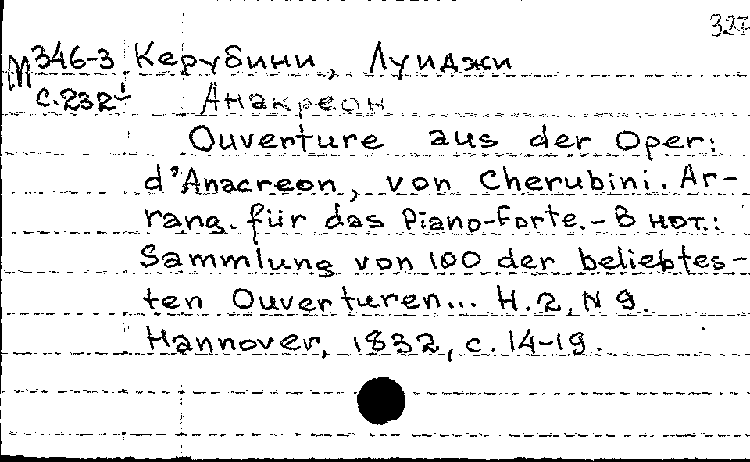 327
М 346-3 Керубини, Луиджи
с.232 Анакреон
Ouverture aus der Oper:
d'Anacreon, von Cherubini. Ar-
rang. für das Piano-Forte. - В нот.:
Sammlung von 100 der beliebtes-
ten Ouverturen... H.2, N 9.
Hannover, 1832, с. 14-19.